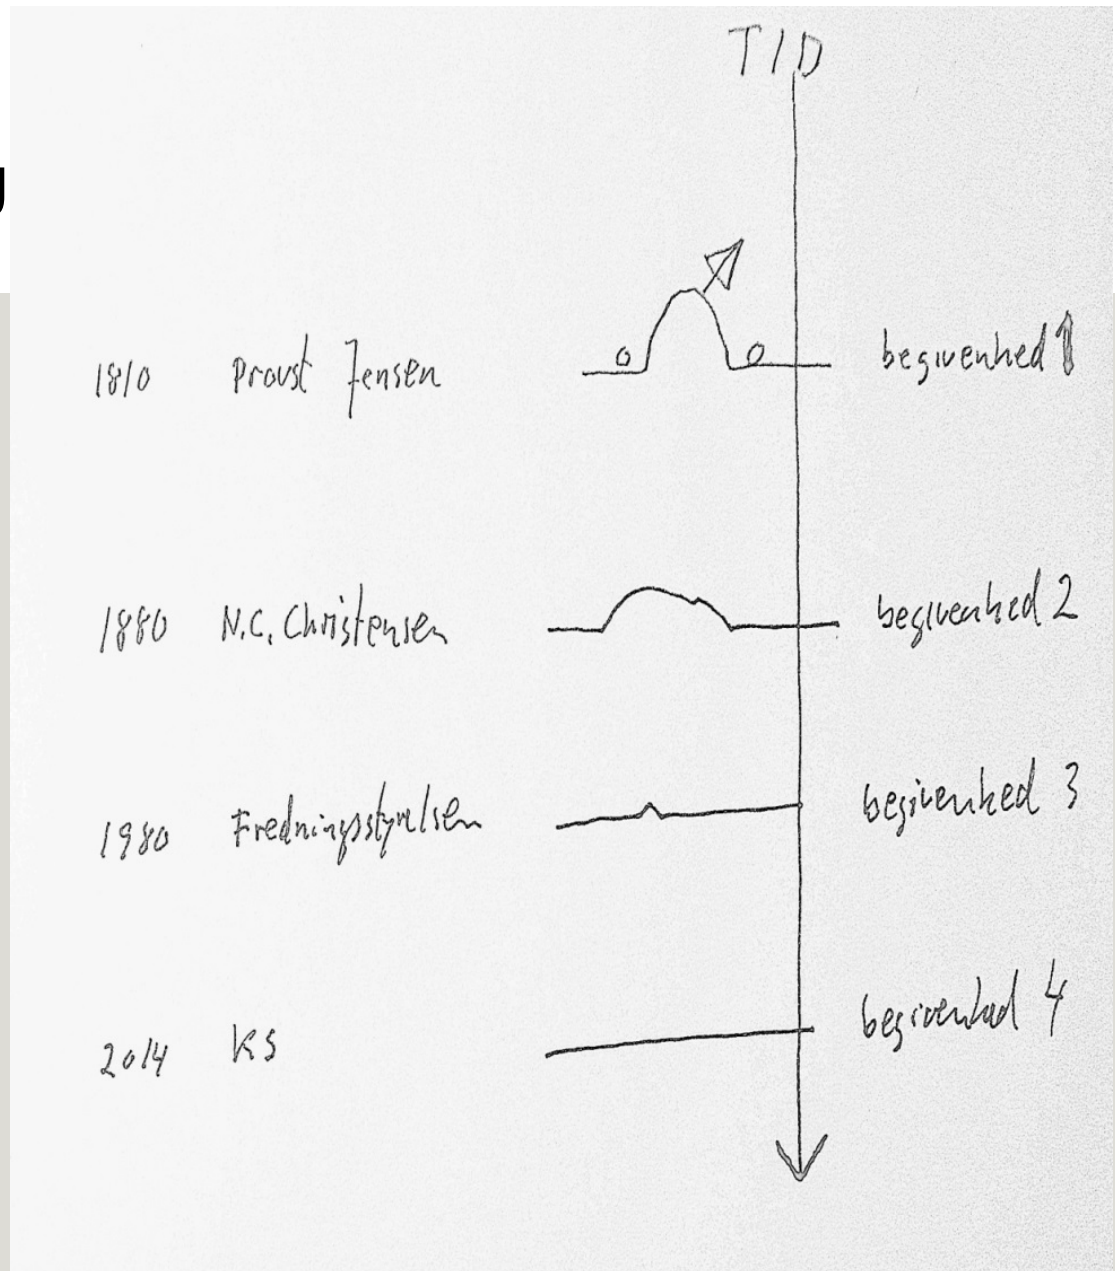 TID
1810 Provst Jensen begivenhed 1
1880 N.C. Christensen begivenhed 2
1980 Fredningsstyrelsen begivenhed 3
2014 KS begivenhed 4